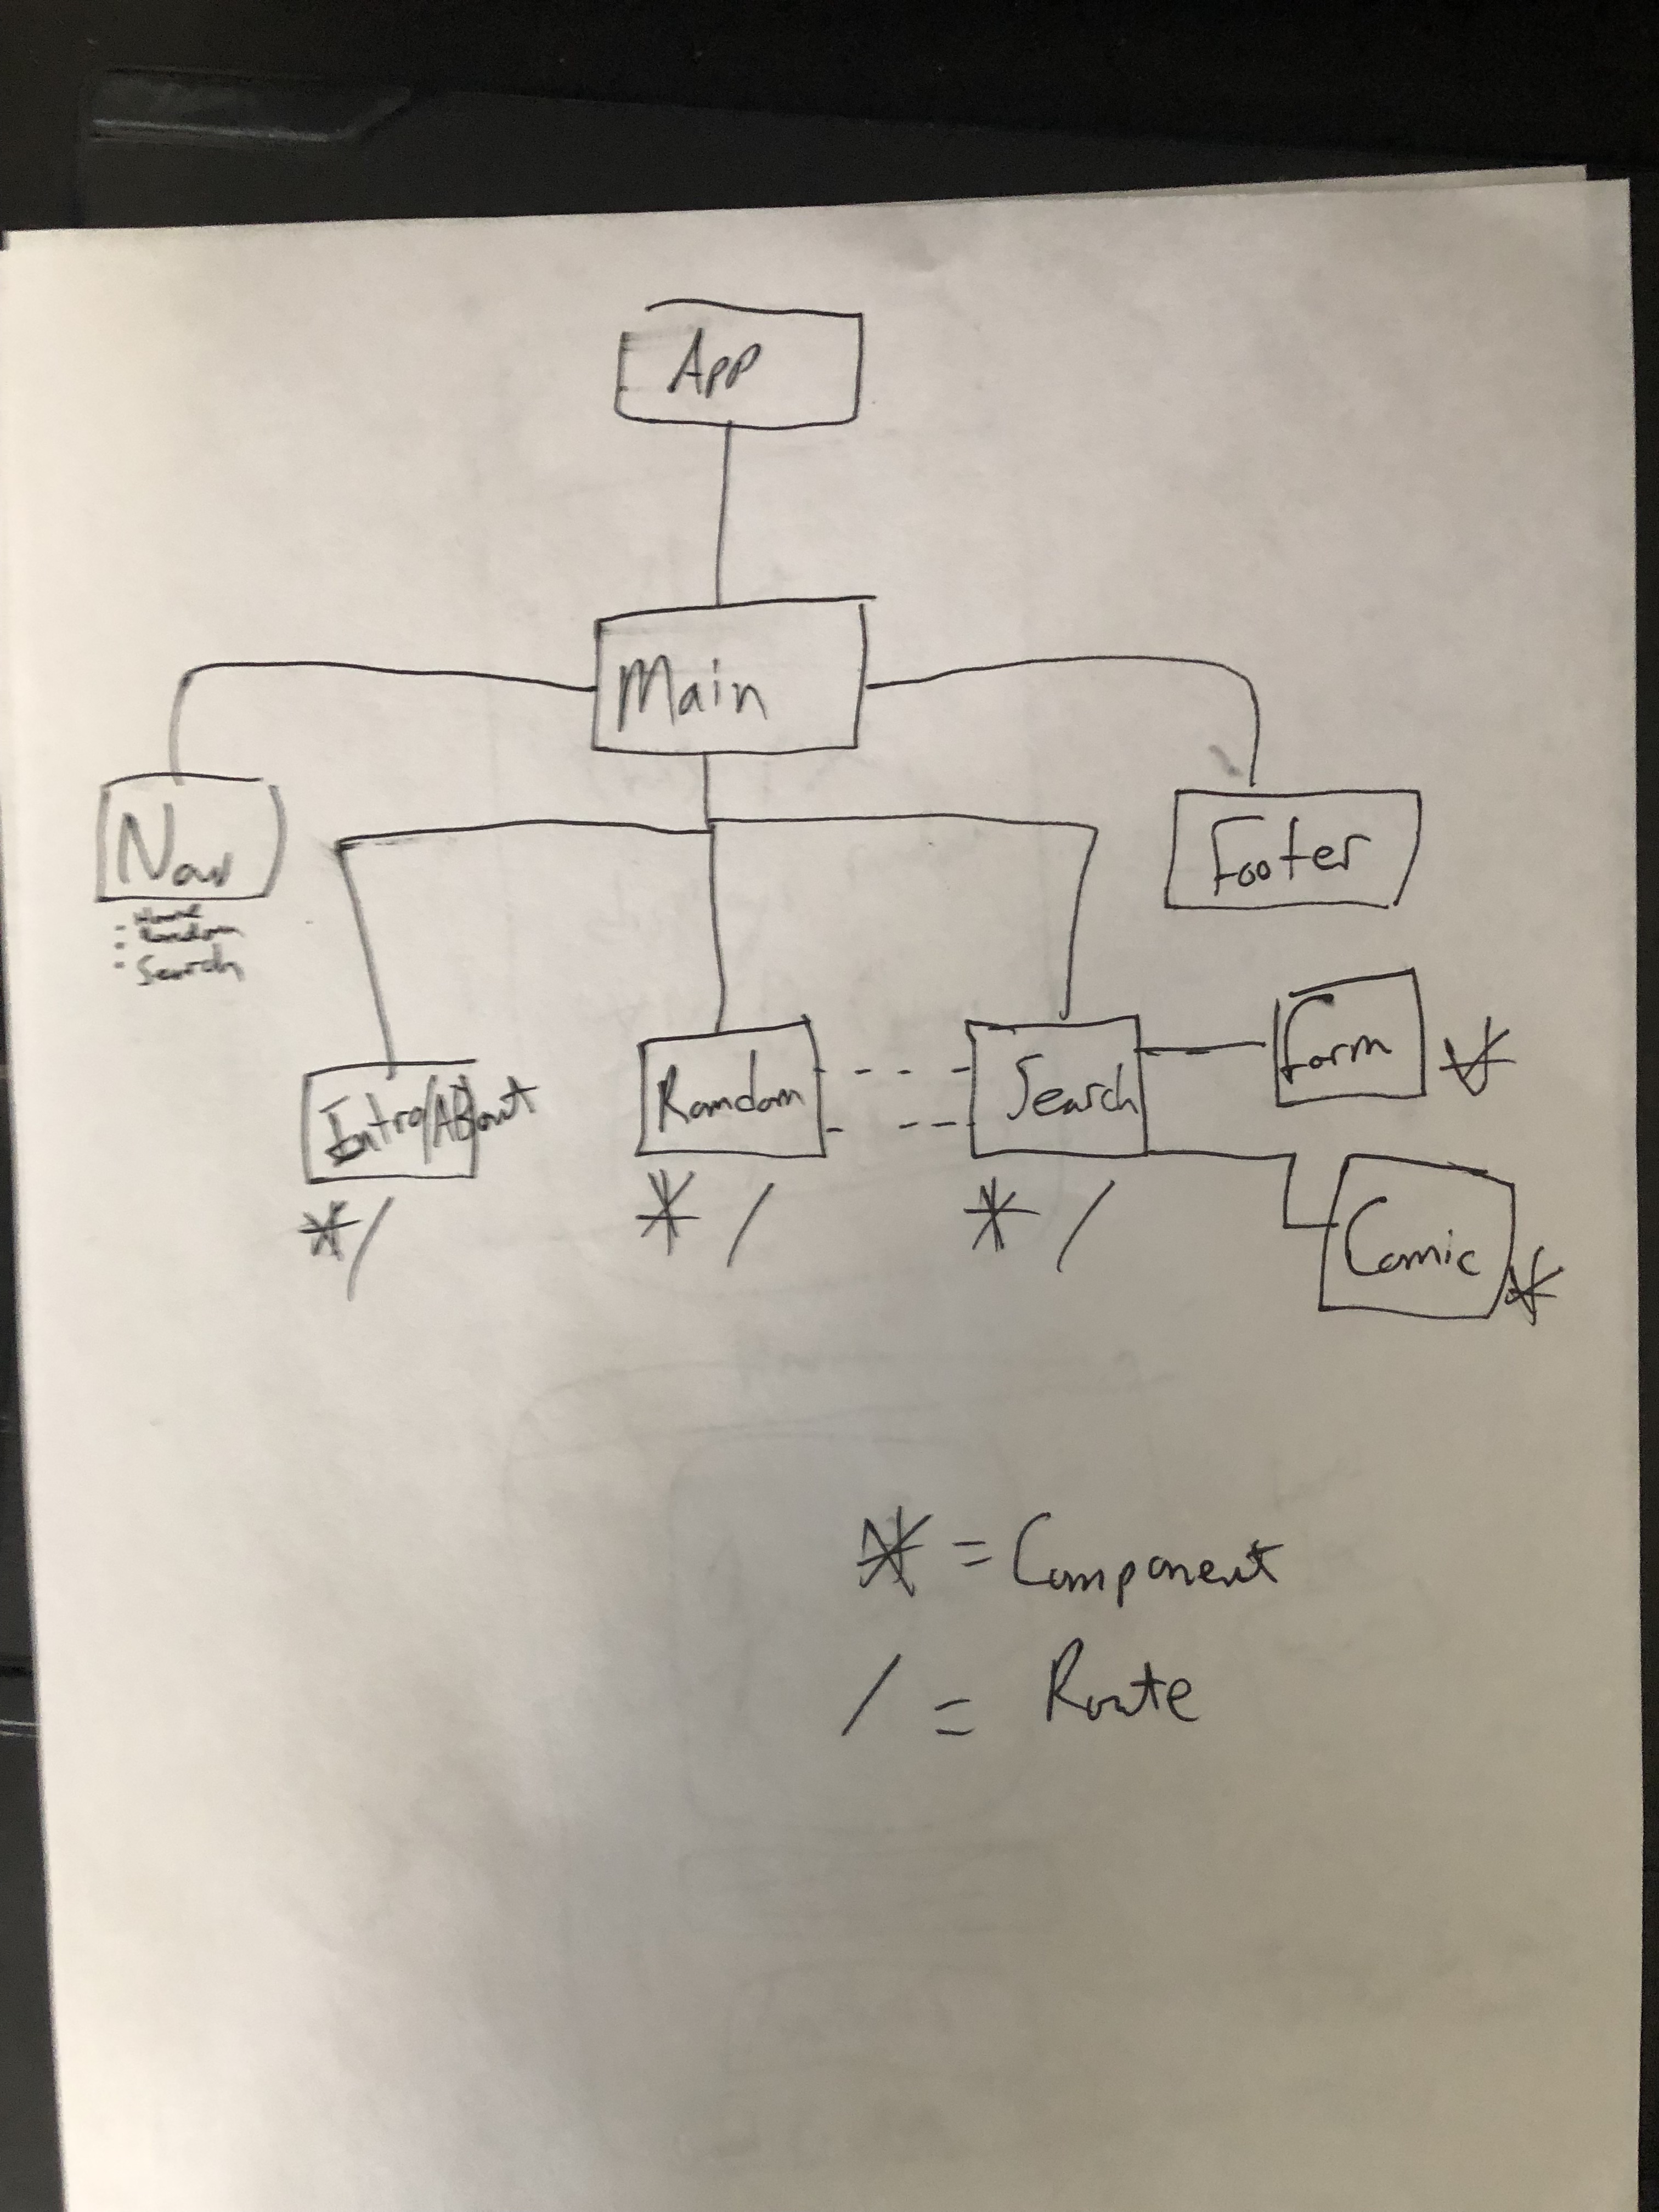 App
Main
Nav
- Home
- Random
- Search
Footer
Intro/About
* /
Random
* /
Search
* /
Form
*
Comic
*
* = Component
/ = Route